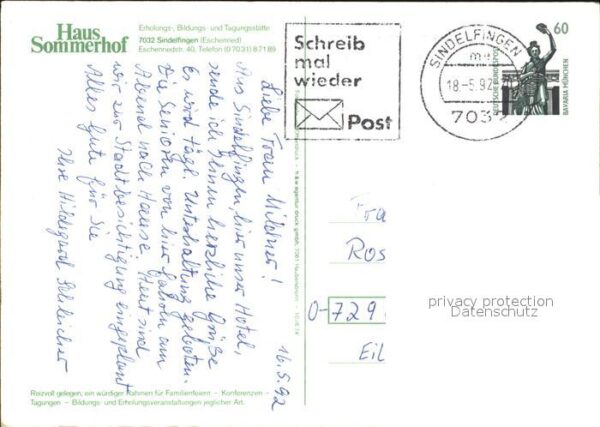 Haus
Sommerhof
Erholungs-, Bildungs- und Tagungsstätte
7032 Sindelfingen (Eschenried)
Eschenriedstr. 40, Telefon (0 70 31) 8 71 89
Schreib
mal
wieder
Post
SINDELFINGEN
18.-5.92
703
60
DEUTSCHE BUNDESPOST
BAVARIA MÜNCHEN
16.5.92
Liebe Frau Mildner!
Aus Sindelfingen, hier unser Hotel,
sende ich Ihnen herzliche Grüße
Es wird tägl. Unterhaltung geboten.
Die Senioren von hier fahren am
Abend nach Hause. Heut sind
wir zur Stadtbesichtigung eingeplant
Alles Gute für Sie
Ihre Hildegard
Fra
Ros
O-729
Eil
privacy protection
Datenschutz
Reizvoll gelegen, ein würdiger Rahmen für Familienfeiern - Konferenzen -
Tagungen - Bildungs- und Erholungsveranstaltungen jeglicher Art.